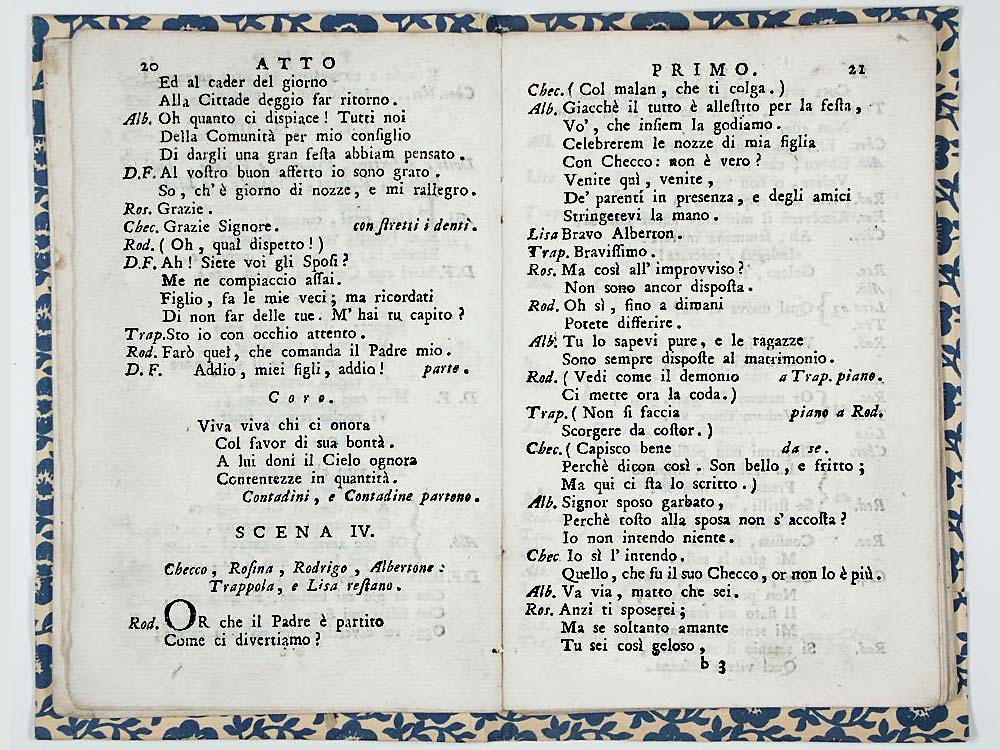 20 ATTO
Ed al cader del giorno
Alla Cittade deggio far ritorno.
Alb. Oh quanto ci dispiace! Tutti noi
Della Comunità per mio configlio
Di dargli una gran feſta abbiam pensato.
D.F. Al voſtro buon affetto io sono grato.
So, ch'è giorno di nozze, e mi rallegro.
Ros. Grazie.
Chec. Grazie Signore. con ſtretti i denti.
Rod. (Oh, qual dispetto!)
D.F. Ah! Siete voi gli Sposi?
Me ne compiaccio aſſai.
Figlio, fa le mie veci; ma ricordati
Di non far delle tue. M' hai tu capito?
Trap. Sto io con occhio attento.
Rod. Farò quel, che comanda il Padre mio.
D. F. Addio, miei figli, addio! parte.
Coro.
Viva viva chi ci onora
Col favor di sua bontà.
A lui doni il Cielo ognora
Contentezze in quantità.
Contadini, e Contadine partono.
SCENA IV.
Checco, Rosina, Rodrigo, Albertone:
Trappola, e Lisa reſtano.
Rod. OR che il Padre è partito
Come ci divertiamo?
PRIMO. 21
Chec. (Col malan, che ti colga.)
Alb. Giacchè il tutto è alleſtito per la feſta,
Vo', che inſiem la godiamo.
Celebrerem le nozze di mia figlia
Con Checco: non è vero?
Venite quì, venite,
De' parenti in presenza, e degli amici
Stringetevi la mano.
Lisa Bravo Alberton.
Trap. Braviſſimo.
Ros. Ma così all' improvviso?
Non sono ancor disposta.
Rod. Oh sì, fino a dimani
Potete differire.
Alb. Tu lo sapevi pure, e le ragazze
Sono sempre dispoſte al matrimonio.
Rod. (Vedi come il demonio a Trap. piano.
Ci mette ora la coda.)
Trap. (Non ſi faccia piano a Rod.
Scorgere da coſtor.)
Chec. (Capisco bene da se.
Perchè dicon così. Son bello, e fritto;
Ma qui ci ſta lo scritto.)
Alb. Signor sposo garbato,
Perchè toſto alla sposa non s' accoſta?
Io non intendo niente.
Chec. Io sì l' intendo.
Quello, che fu il suo Checco, or non lo è più.
Alb. Va via, matto che sei.
Ros. Anzi ti sposerei;
Ma se soltanto amante
Tu sei così geloso,
b 3